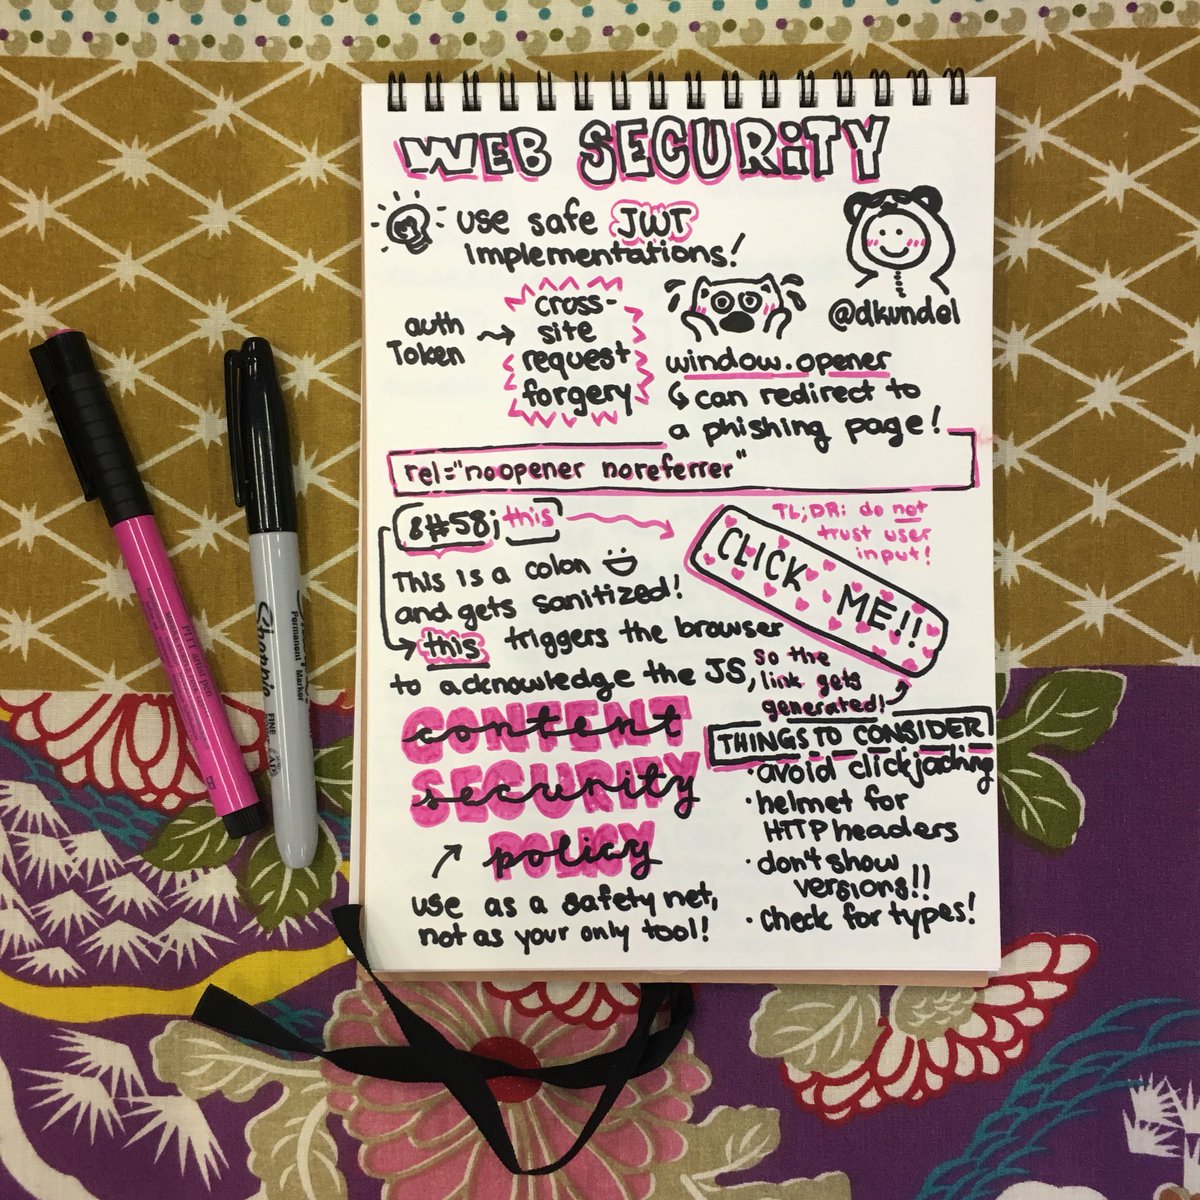 WEB SECURITY
use safe JWT
implementations!
@dkundel
auth
Token
cross-
site
request
forgery
window.opener
can redirect to
a phishing page!
rel="noopener noreferrer"
&#58;this
TL;DR: do not
trust user
input!
CLICK ME!!
This is a colon
and gets sanitized!
this triggers the browser
to acknowledge the JS,
so the
link gets
generated!
CONTENT
content
SECURITY
security
POLICY
policy
use as a safety net,
not as your only tool!
THINGS TO CONSIDER
· avoid clickjacking
· helmet for
HTTP headers
· don't show
versions!!
· check for types!
Sharpie
Permanent Marker
FINE